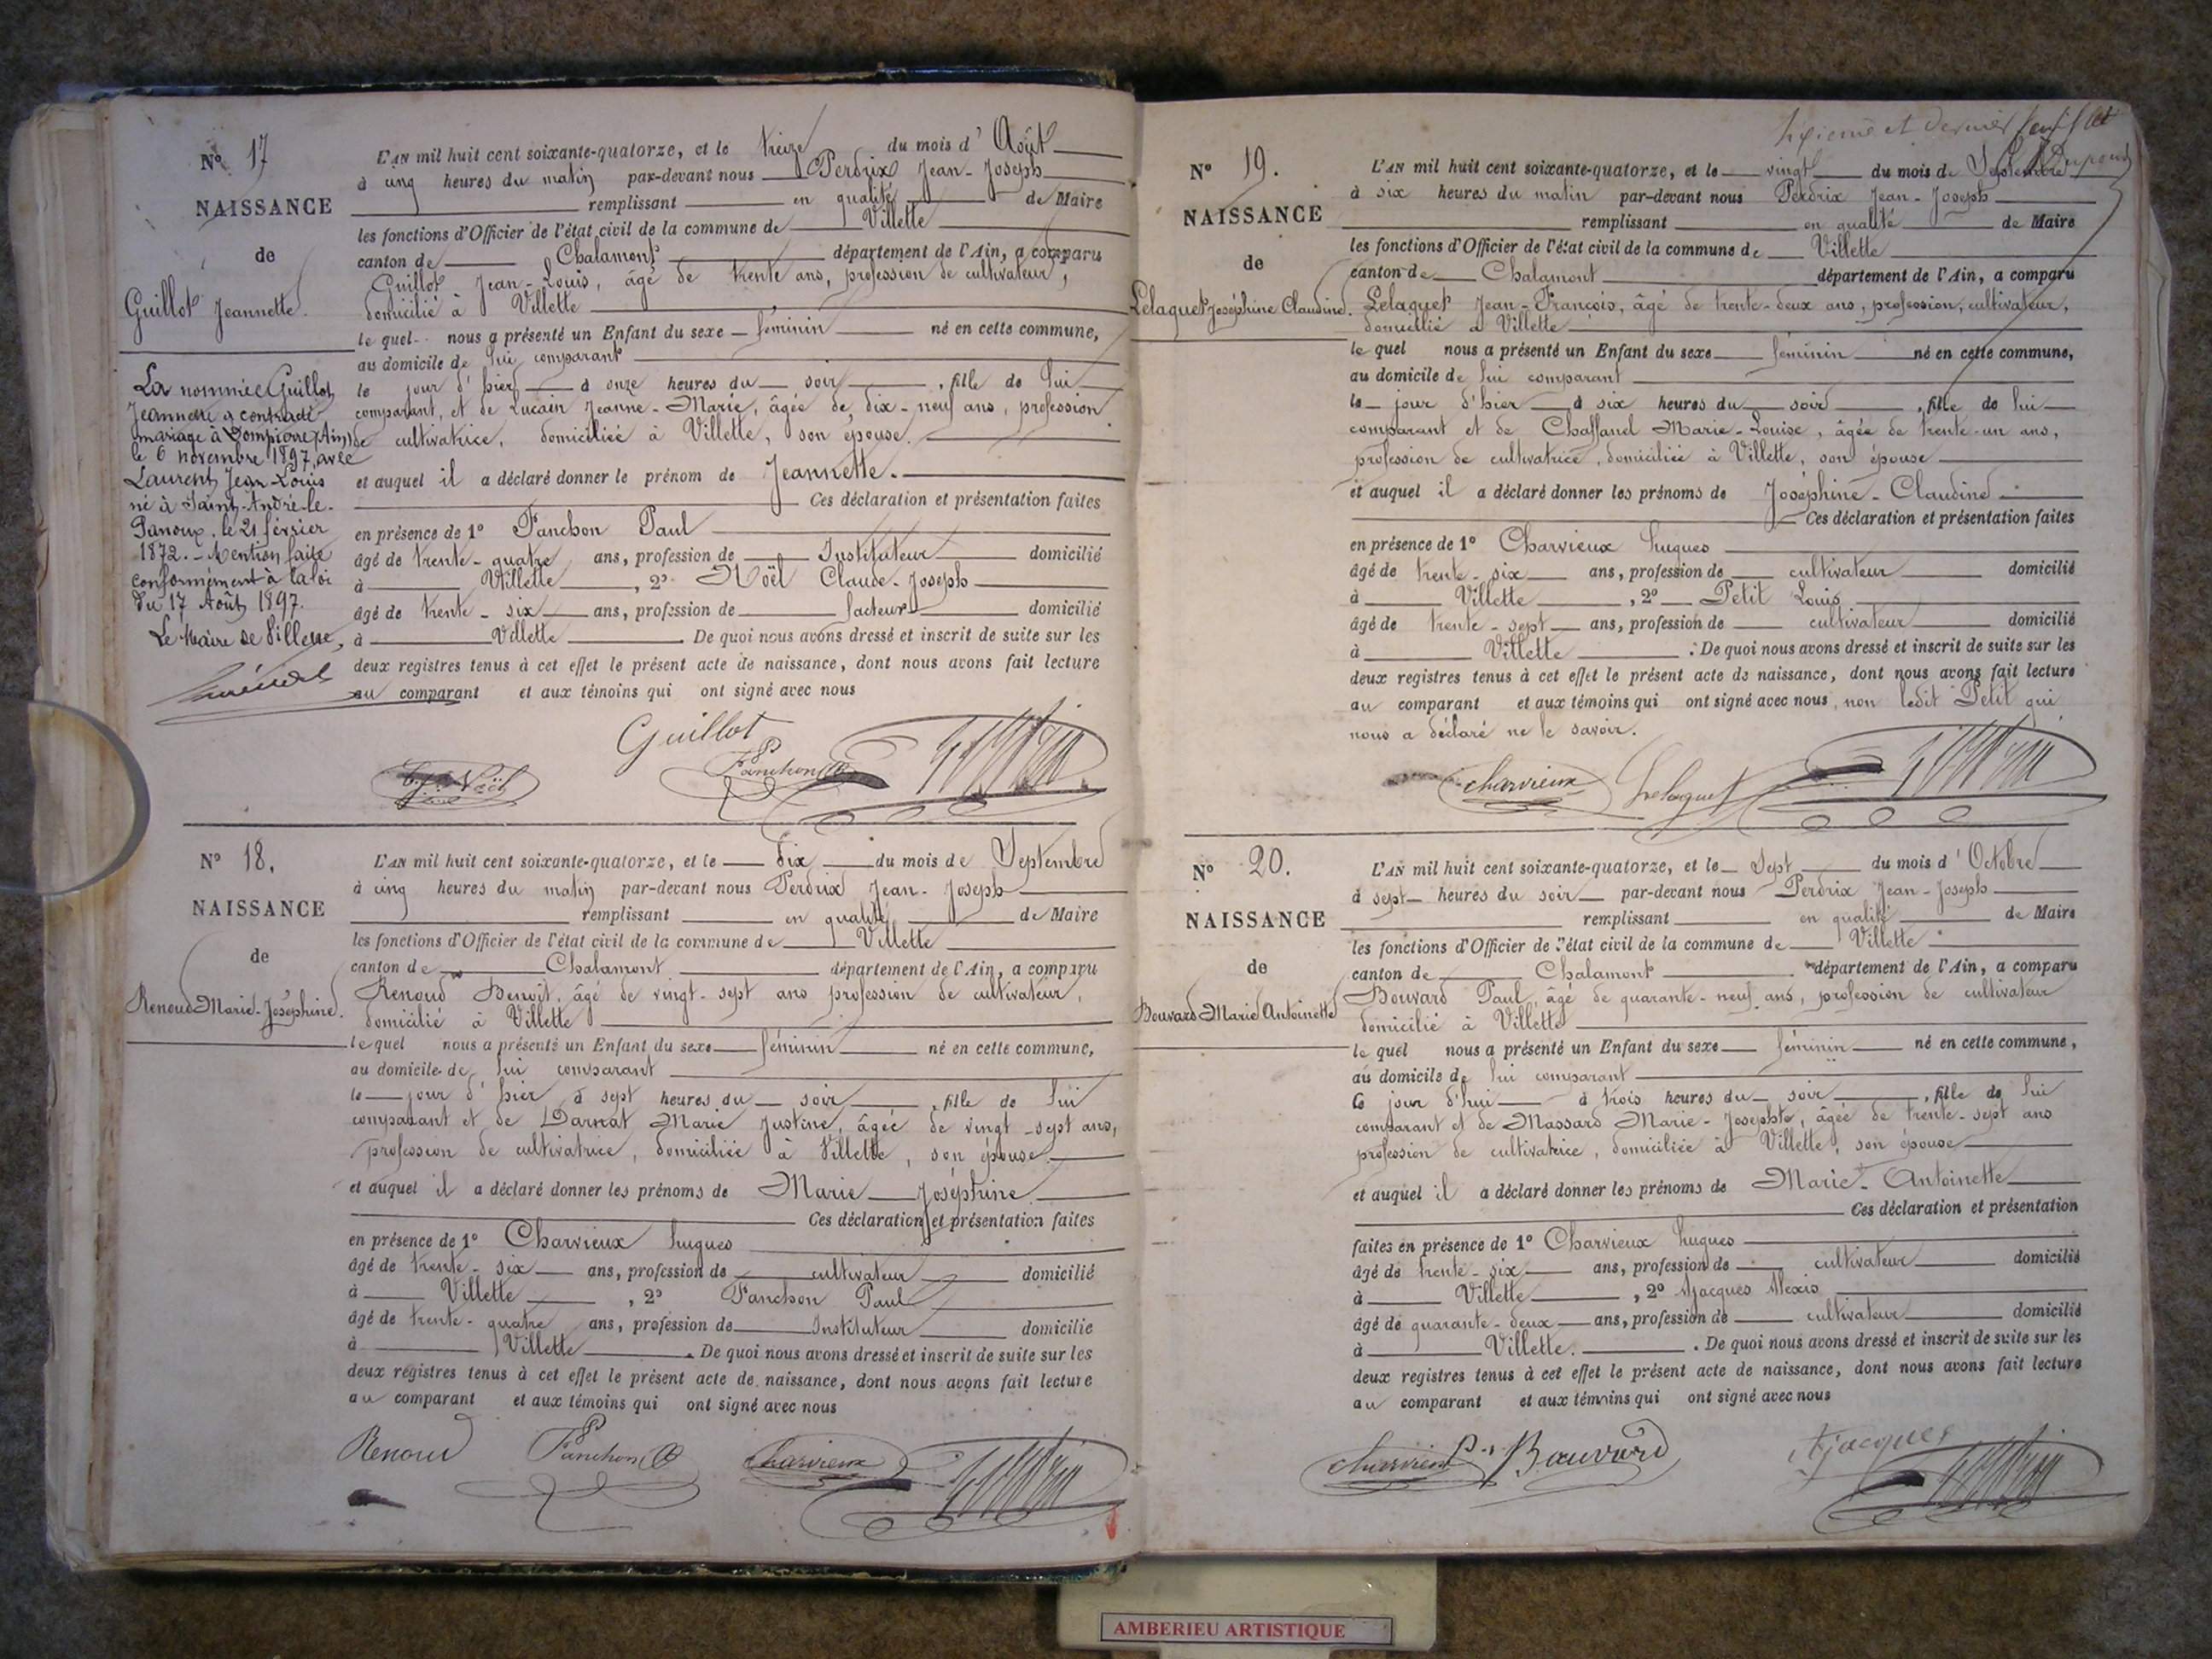 N° 17
NAISSANCE
de
Guillot Jeannette.
La nommée Guillot
Jeannette a contracté
mariage à Dompierre (Ain)
le 6 novembre 1897, avec
Laurent Jean-Louis
né à Saint-André-le-
Panoux, le 21 février
1872. - Mention faite
conformément à la loi
du 17 Août 1897.
Le Maire de Villette,
L'AN mil huit cent soixante-quatorze, et le treize du mois d'Août
à cinq heures du matin par-devant nous Perdrix Jean-Joseph
remplissant en qualité de Maire
les fonctions d'Officier de l'état civil de la commune de Villette
canton de Chalamont département de l'Ain, a comparu
Guillot Jean-Louis, âgé de trente ans, profession de cultivateur,
domicilié à Villette
le quel nous a présenté un Enfant du sexe féminin né en cette commune,
au domicile de lui comparant
le jour d'hier à onze heures du soir, fille de lui
comparant, et de Lucain Jeanne-Marie, âgée de dix-neuf ans, profession
de cultivatrice, domiciliée à Villette, son épouse.
et auquel il a déclaré donner le prénom de Jeannette.
Ces déclaration et présentation faites
en présence de 1° Fanchon Paul
âgé de trente-quatre ans, profession de Instituteur domicilié
à Villette, 2° Noël Claude-Joseph
âgé de trente-six ans, profession de facteur domicilié
à Villette. De quoi nous avons dressé et inscrit de suite sur les
deux registres tenus à cet effet le présent acte de naissance, dont nous avons fait lecture
au comparant et aux témoins qui ont signé avec nous
Guillot
Noël Fanchon P
N° 18.
NAISSANCE
de
Renoud Marie-Joséphine.
L'AN mil huit cent soixante-quatorze, et le dix du mois de Septembre
à cinq heures du matin par-devant nous Perdrix Jean-Joseph
remplissant en qualité de Maire
les fonctions d'Officier de l'état civil de la commune de Villette
canton de Chalamont département de l'Ain, a comparu
Renoud Benoit, âgé de vingt-sept ans profession de cultivateur,
domicilié à Villette
le quel nous a présenté un Enfant du sexe féminin né en cette commune,
au domicile de lui comparant
le jour d'hier à sept heures du soir, fille de lui
comparant et de Darnat Marie Justine, âgée de vingt-sept ans,
profession de cultivatrice, domiciliée à Villette, son épouse.
et auquel il a déclaré donner les prénoms de Marie Joséphine.
Ces déclaration et présentation faites
en présence de 1° Charvieux hugues
âgé de trente-six ans, profession de cultivateur domicilié
à Villette, 2° Fanchon Paul
âgé de trente-quatre ans, profession de Instituteur domicilié
à Villette. De quoi nous avons dressé et inscrit de suite sur les
deux registres tenus à cet effet le présent acte de naissance, dont nous avons fait lecture
au comparant et aux témoins qui ont signé avec nous
Renoud Fanchon P Charvieux
et dernier feuillet
Dupond
N° 19.
NAISSANCE
de
Lelaquet Joséphine Claudine.
L'AN mil huit cent soixante-quatorze, et le vingt du mois de Septembre
à six heures du matin par-devant nous Perdrix Jean-Joseph
remplissant en qualité de Maire
les fonctions d'Officier de l'état civil de la commune de Villette
canton de Chalamont département de l'Ain, a comparu
Lelaquet Jean-François, âgé de trente-deux ans, profession, cultivateur,
domicilié à Villette
le quel nous a présenté un Enfant du sexe féminin né en cette commune,
au domicile de lui comparant
le jour d'hier à six heures du soir, fille de lui
comparant et de Chaffanel Marie-Louise, âgée de trente-un ans,
profession de cultivatrice, domiciliée à Villette, son épouse
et auquel il a déclaré donner les prénoms de Joséphine-Claudine
Ces déclaration et présentation faites
en présence de 1° Charvieux hugues
âgé de trente-six ans, profession de cultivateur domicilié
à Villette, 2° Petit Louis
âgé de trente-sept ans, profession de cultivateur domicilié
à Villette. De quoi nous avons dressé et inscrit de suite sur les
deux registres tenus à cet effet le présent acte de naissance, dont nous avons fait lecture
au comparant et aux témoins qui ont signé avec nous, non ledit Petit qui
nous a déclaré ne le savoir.
Charvieux Lelaquet
N° 20.
NAISSANCE
de
Bouvard Marie Antoinette
L'AN mil huit cent soixante-quatorze, et le Sept du mois d'Octobre
à sept heures du soir par-devant nous Perdrix Jean-Joseph
remplissant en qualité de Maire
les fonctions d'Officier de l'état civil de la commune de Villette
canton de Chalamont département de l'Ain, a comparu
Bouvard Paul, âgé de quarante-neuf ans, profession de cultivateur
domicilié à Villette
le quel nous a présenté un Enfant du sexe féminin né en cette commune,
au domicile de lui comparant
le jour d'hui à trois heures du soir, fille de lui
comparant et de Massard Marie-Josephte, âgée de trente-sept ans
profession de cultivatrice, domiciliée à Villette, son épouse
et auquel il a déclaré donner les prénoms de Marie-Antoinette
Ces déclaration et présentation
faites en présence de 1° Charvieux hugues
âgé de trente-six ans, profession de cultivateur domicilié
à Villette, 2° Ajacques Alexis
âgé de quarante-deux ans, profession de cultivateur domicilié
à Villette. De quoi nous avons dressé et inscrit de suite sur les
deux registres tenus à cet effet le présent acte de naissance, dont nous avons fait lecture
au comparant et aux témoins qui ont signé avec nous
Charvieux P. Bouvard Ajacques
AMBERIEU ARTISTIQUE